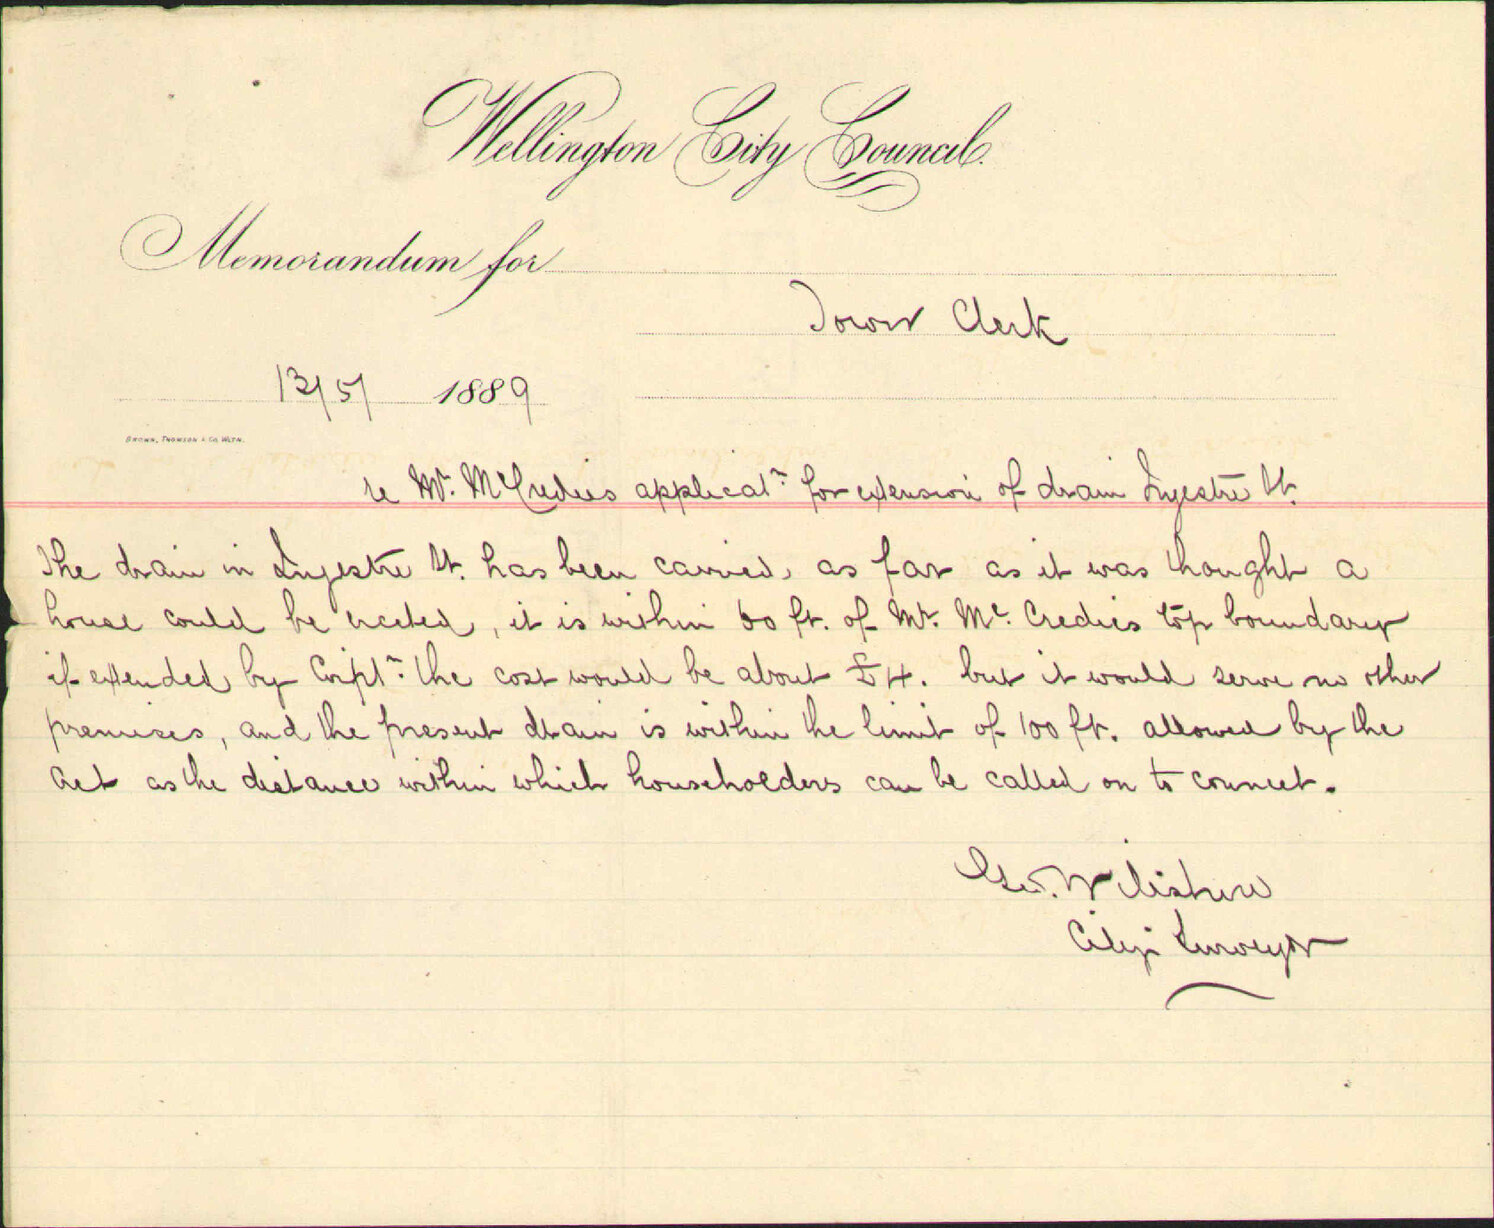 Wellington City Council.
Memorandum for
Town Clerk
13/5/ 1889
BROWN, THOMSON & Co. WLTN.
re Mr. McCredies applicatn for extension of drain Ingestre St.
The drain in Ingestre St. has been carried, as far as it was thought a
house could be erected, it is within 60 ft. of Mr. McCredies top boundary
if extended by Corptn the cost would be about £4. but it would serve no other
premises, and the present drain is within the limit of 100 ft. allowed by the
Act as the distance within which householders can be called on to connect.
Geo. Wiltshire
City Surveyor